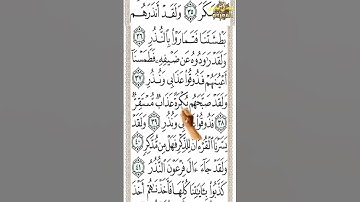 شَكَرَ ٣٥ وَلَقَدْ أَنذَرَهُم
بَطْشَتَنَا فَتَمَارَوْا۟ بِٱلنُّذُرِ ٣٦
وَلَقَدْ رَٰوَدُوهُ عَن ضَيْفِهِۦ فَطَمَسْنَآ
أَعْيُنَهُمْ فَذُوقُوا۟ عَذَابِى وَنُذُرِ ٣٧
وَلَقَدْ صَبَّحَهُم بُكْرَةً عَذَابٌ مُّسْتَقِرٌّ
٣٨ فَذُوقُوا۟ وَنُذُرِ ٣٩ وَلَقَدْ
يَسَّرْنَا ٱلْقُرْءَانَ لِلذِّكْرِ فَهَلْ مِن مُّدَّكِرٍ ٤٠
وَلَقَدْ جَآءَ ءَالَ فِرْعَوْنَ ٱلنُّذُرُ ٤١
كَذَّبُوا۟ بِـَٔايَٰتِنَا كُلِّهَا فَأَخَذْنَٰهُمْ أَخْذَ